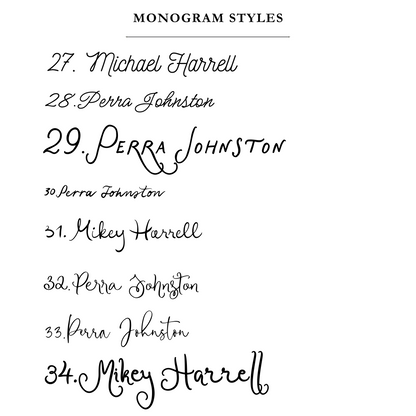 MONOGRAM STYLES
27. Michael Harrell
28. Perra Johnston
29. PERRA JOHNSTON
30 Perra Johnston
31. Mikey Harrell
32. Perra Johnston
33. Perra Johnston
34. Mikey Harrell